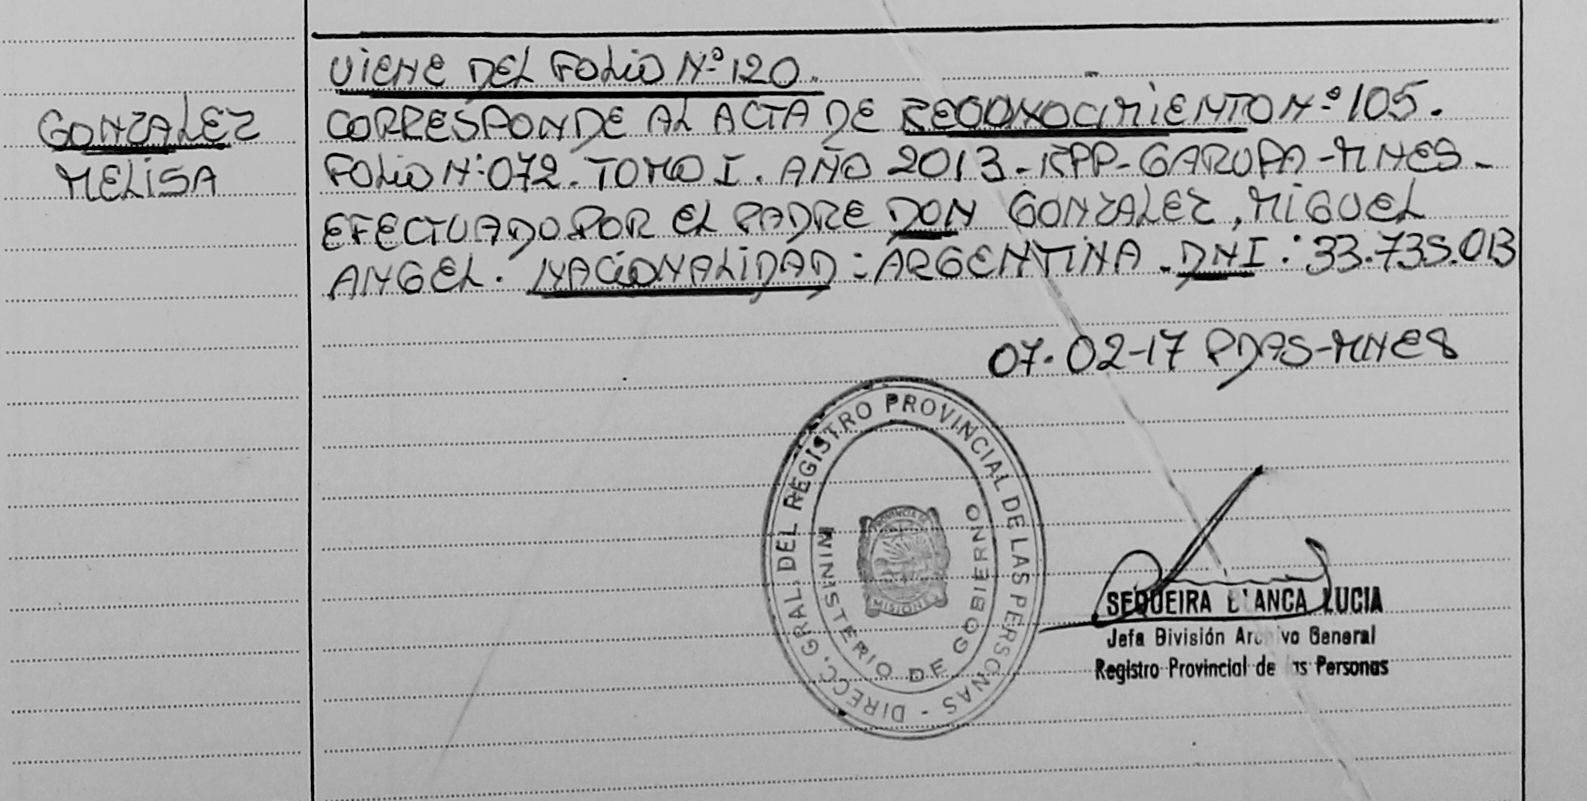 VIENE DEL FOLIO Nº 120.
GONZALEZ
MELISA
CORRESPONDE AL ACTA DE RECONOCIMIENTO Nº 105.
FOLIO Nº 072. TOMO I. AÑO 2013 - RPP - GARUPA - MNES -
EFECTUADO POR EL PADRE DON GONZALEZ, MIGUEL
ANGEL. NACIONALIDAD: ARGENTINA. DNI: 33.735.013
07-02-17 PDAS-MNES
DIRECC. GRAL. DEL REGISTRO PROVINCIAL DE LAS PERSONAS -
MINISTERIO DE GOBIERNO
PROVINCIA DE
MISIONES
SEQUEIRA BLANCA LUCIA
Jefa División Archivo General
Registro Provincial de las Personas